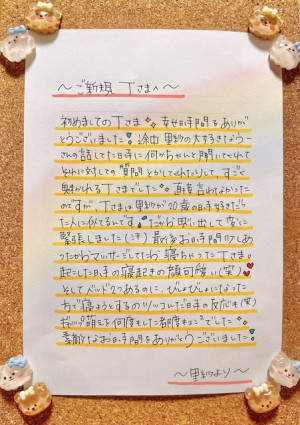 〜ご新規Tさまへ〜
初めましてのTさま 幸せ時間をありが
とうございました! 途中 里紗の大好きなうー
さんの話してた時に何かちゃんと聞いてくれて
それに対しての質問とかしてくれたりして、すごく
魅かれるTさまでした 直接言わなかった
のですが、Tさまは里紗が20歳の時好きだっ
た人に似てるんです だから思い出して変に
緊張しました(汗) 最後お時間けっこうあ
ったからマッサージしてたら寝ちゃったTさま。
起こした時の寝起きの顔可愛い(笑)
そしてベッド2つあるのに、びしょびしょになった
方で寝ようとするのツッコんだ時の反応も(笑)
ギャップ萌えを何度もした都度キュンでした
素敵なお時間をありがとうございました!
〜里紗より〜